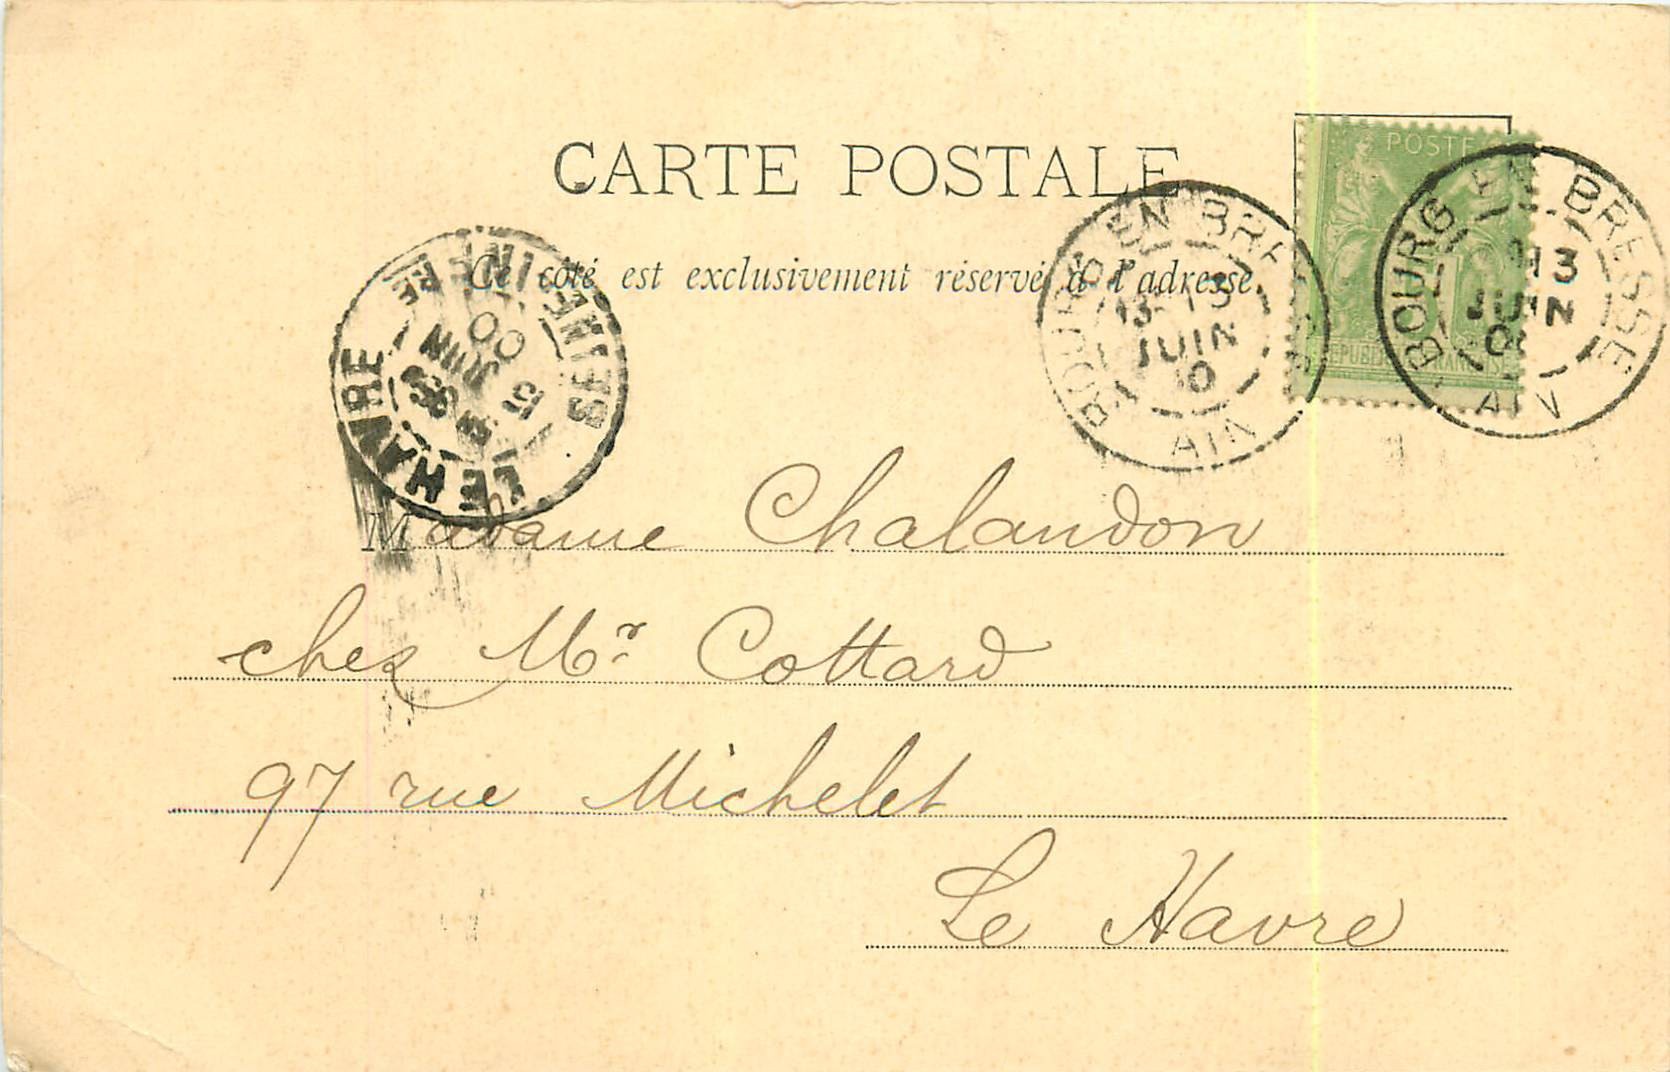 CARTE POSTALE
Ce côté est exclusivement réservé à l'adresse.
POSTE
REPUBLIQUE FRANÇAISE
BOURG EN BRESSE
13
JUIN
AIN
BOURG EN BRESSE
13
JUIN
AIN
LE HAVRE
SEINE INFRE
15
JUIN
00
Madame Chalandon
chez Mr Cottard
97 rue Michelet
Le Havre